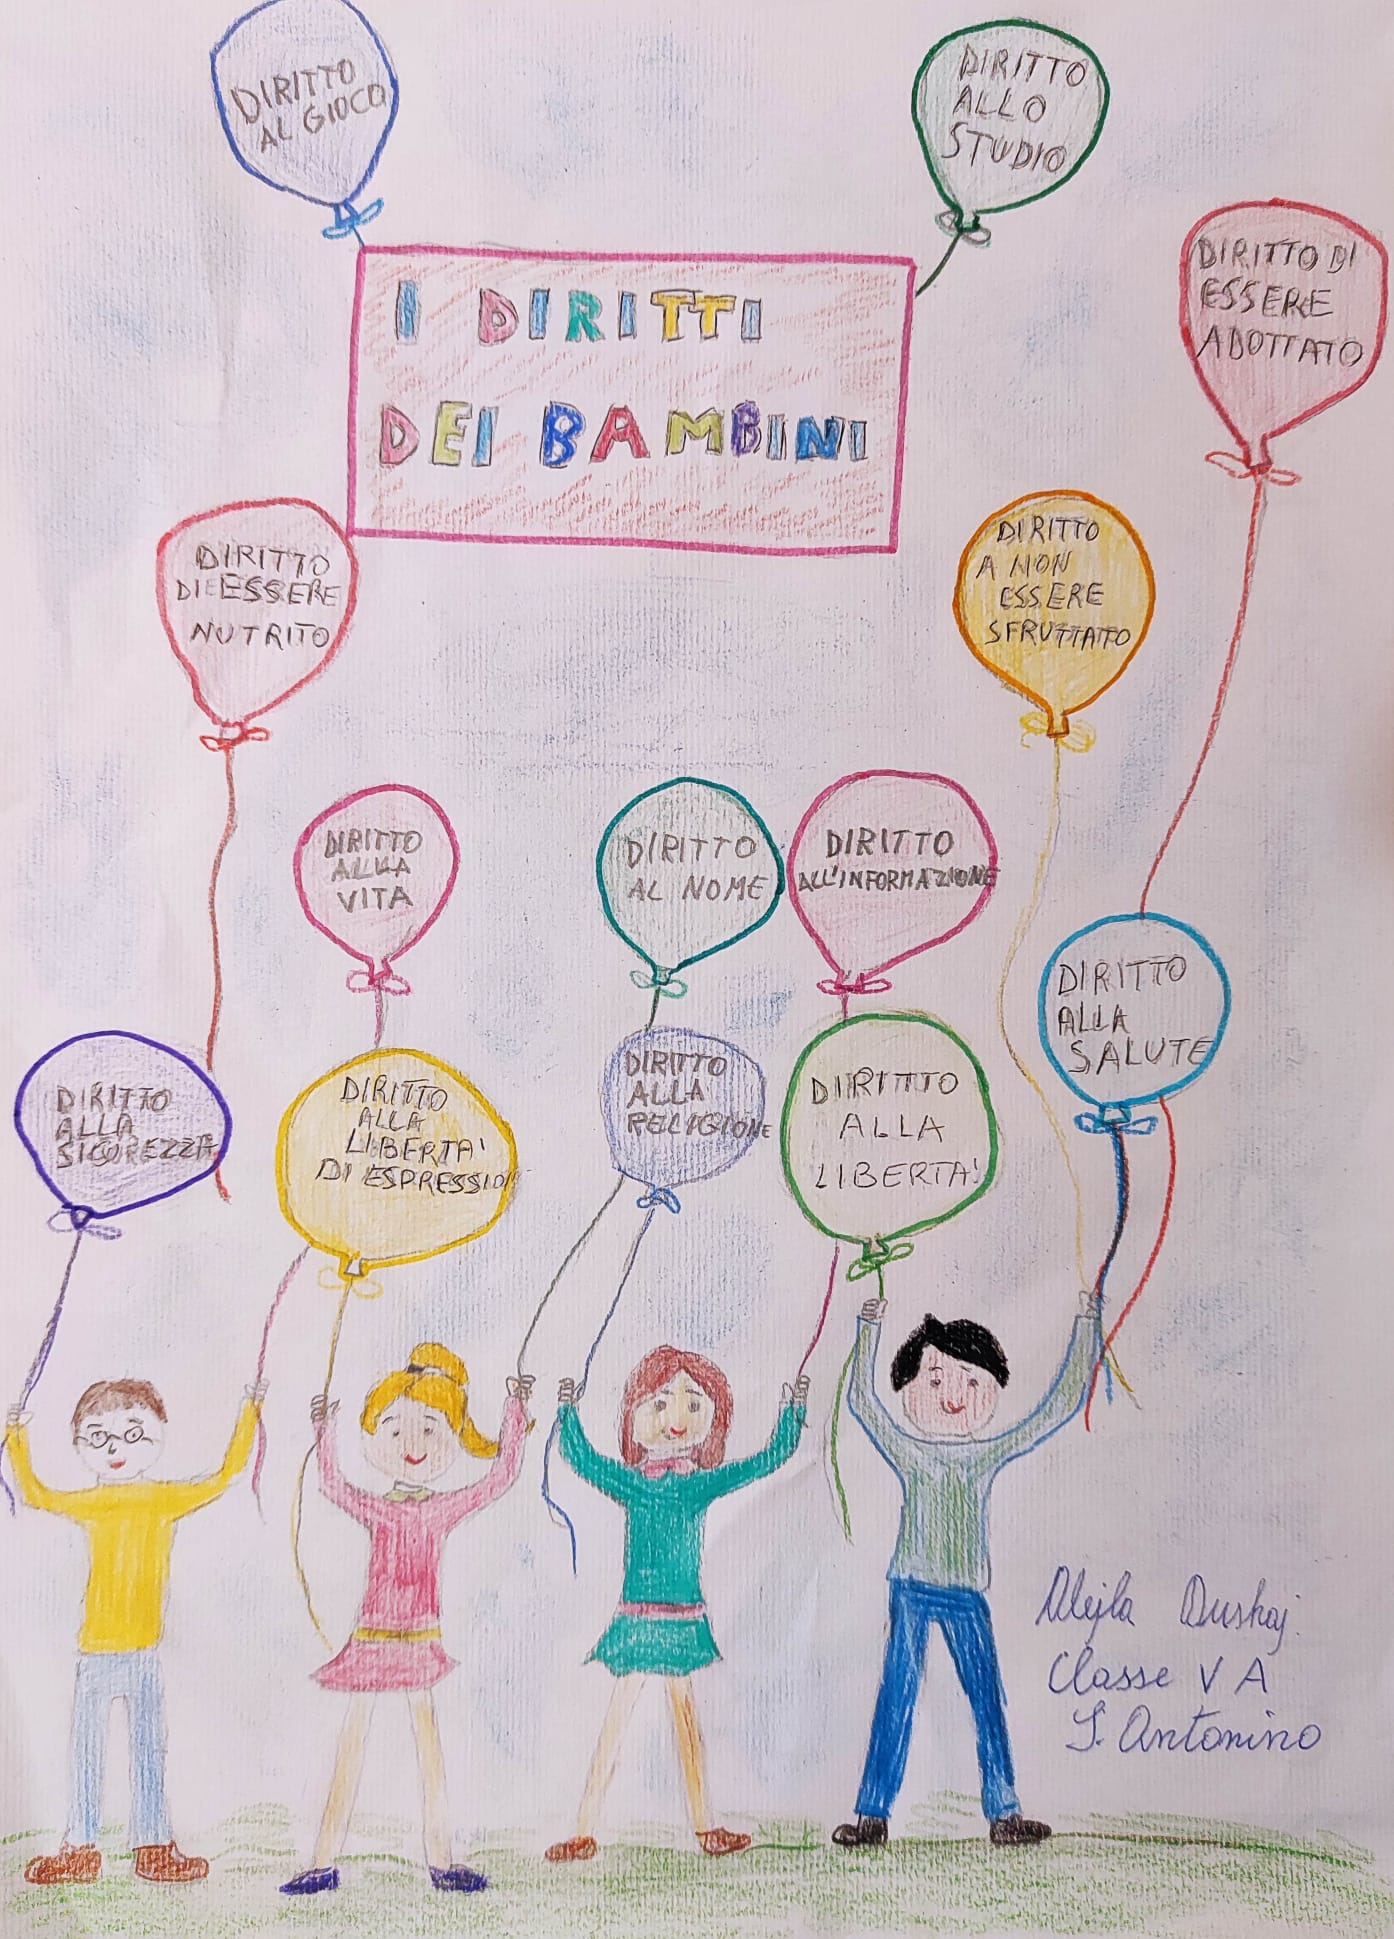 DIRITTO
AL GIOCO
DIRITTO
ALLO
STUDIO
DIRITTO DI
ESSERE
ADOTTATO
I DIRITTI
DEI BAMBINI
DIRITTO
DI ESSERE
NUTRITO
DIRITTO
A NON
ESSERE
SFRUTTATO
DIRITTO
ALLA
VITA
DIRITTO
AL NOME
DIRITTO
ALL'INFORMAZIONE
DIRITTO
ALLA
SALUTE
DIRITTO
ALLA
SICUREZZA
DIRITTO
ALLA
LIBERTA'
DI ESPRESSIO
DIRITTO
ALLA
RELIGIONE
DIRITTO
ALLA
LIBERTA'
Classe V A
S. Antonino